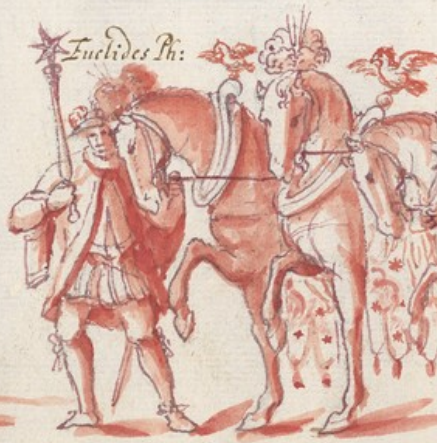 Euclides Ph: